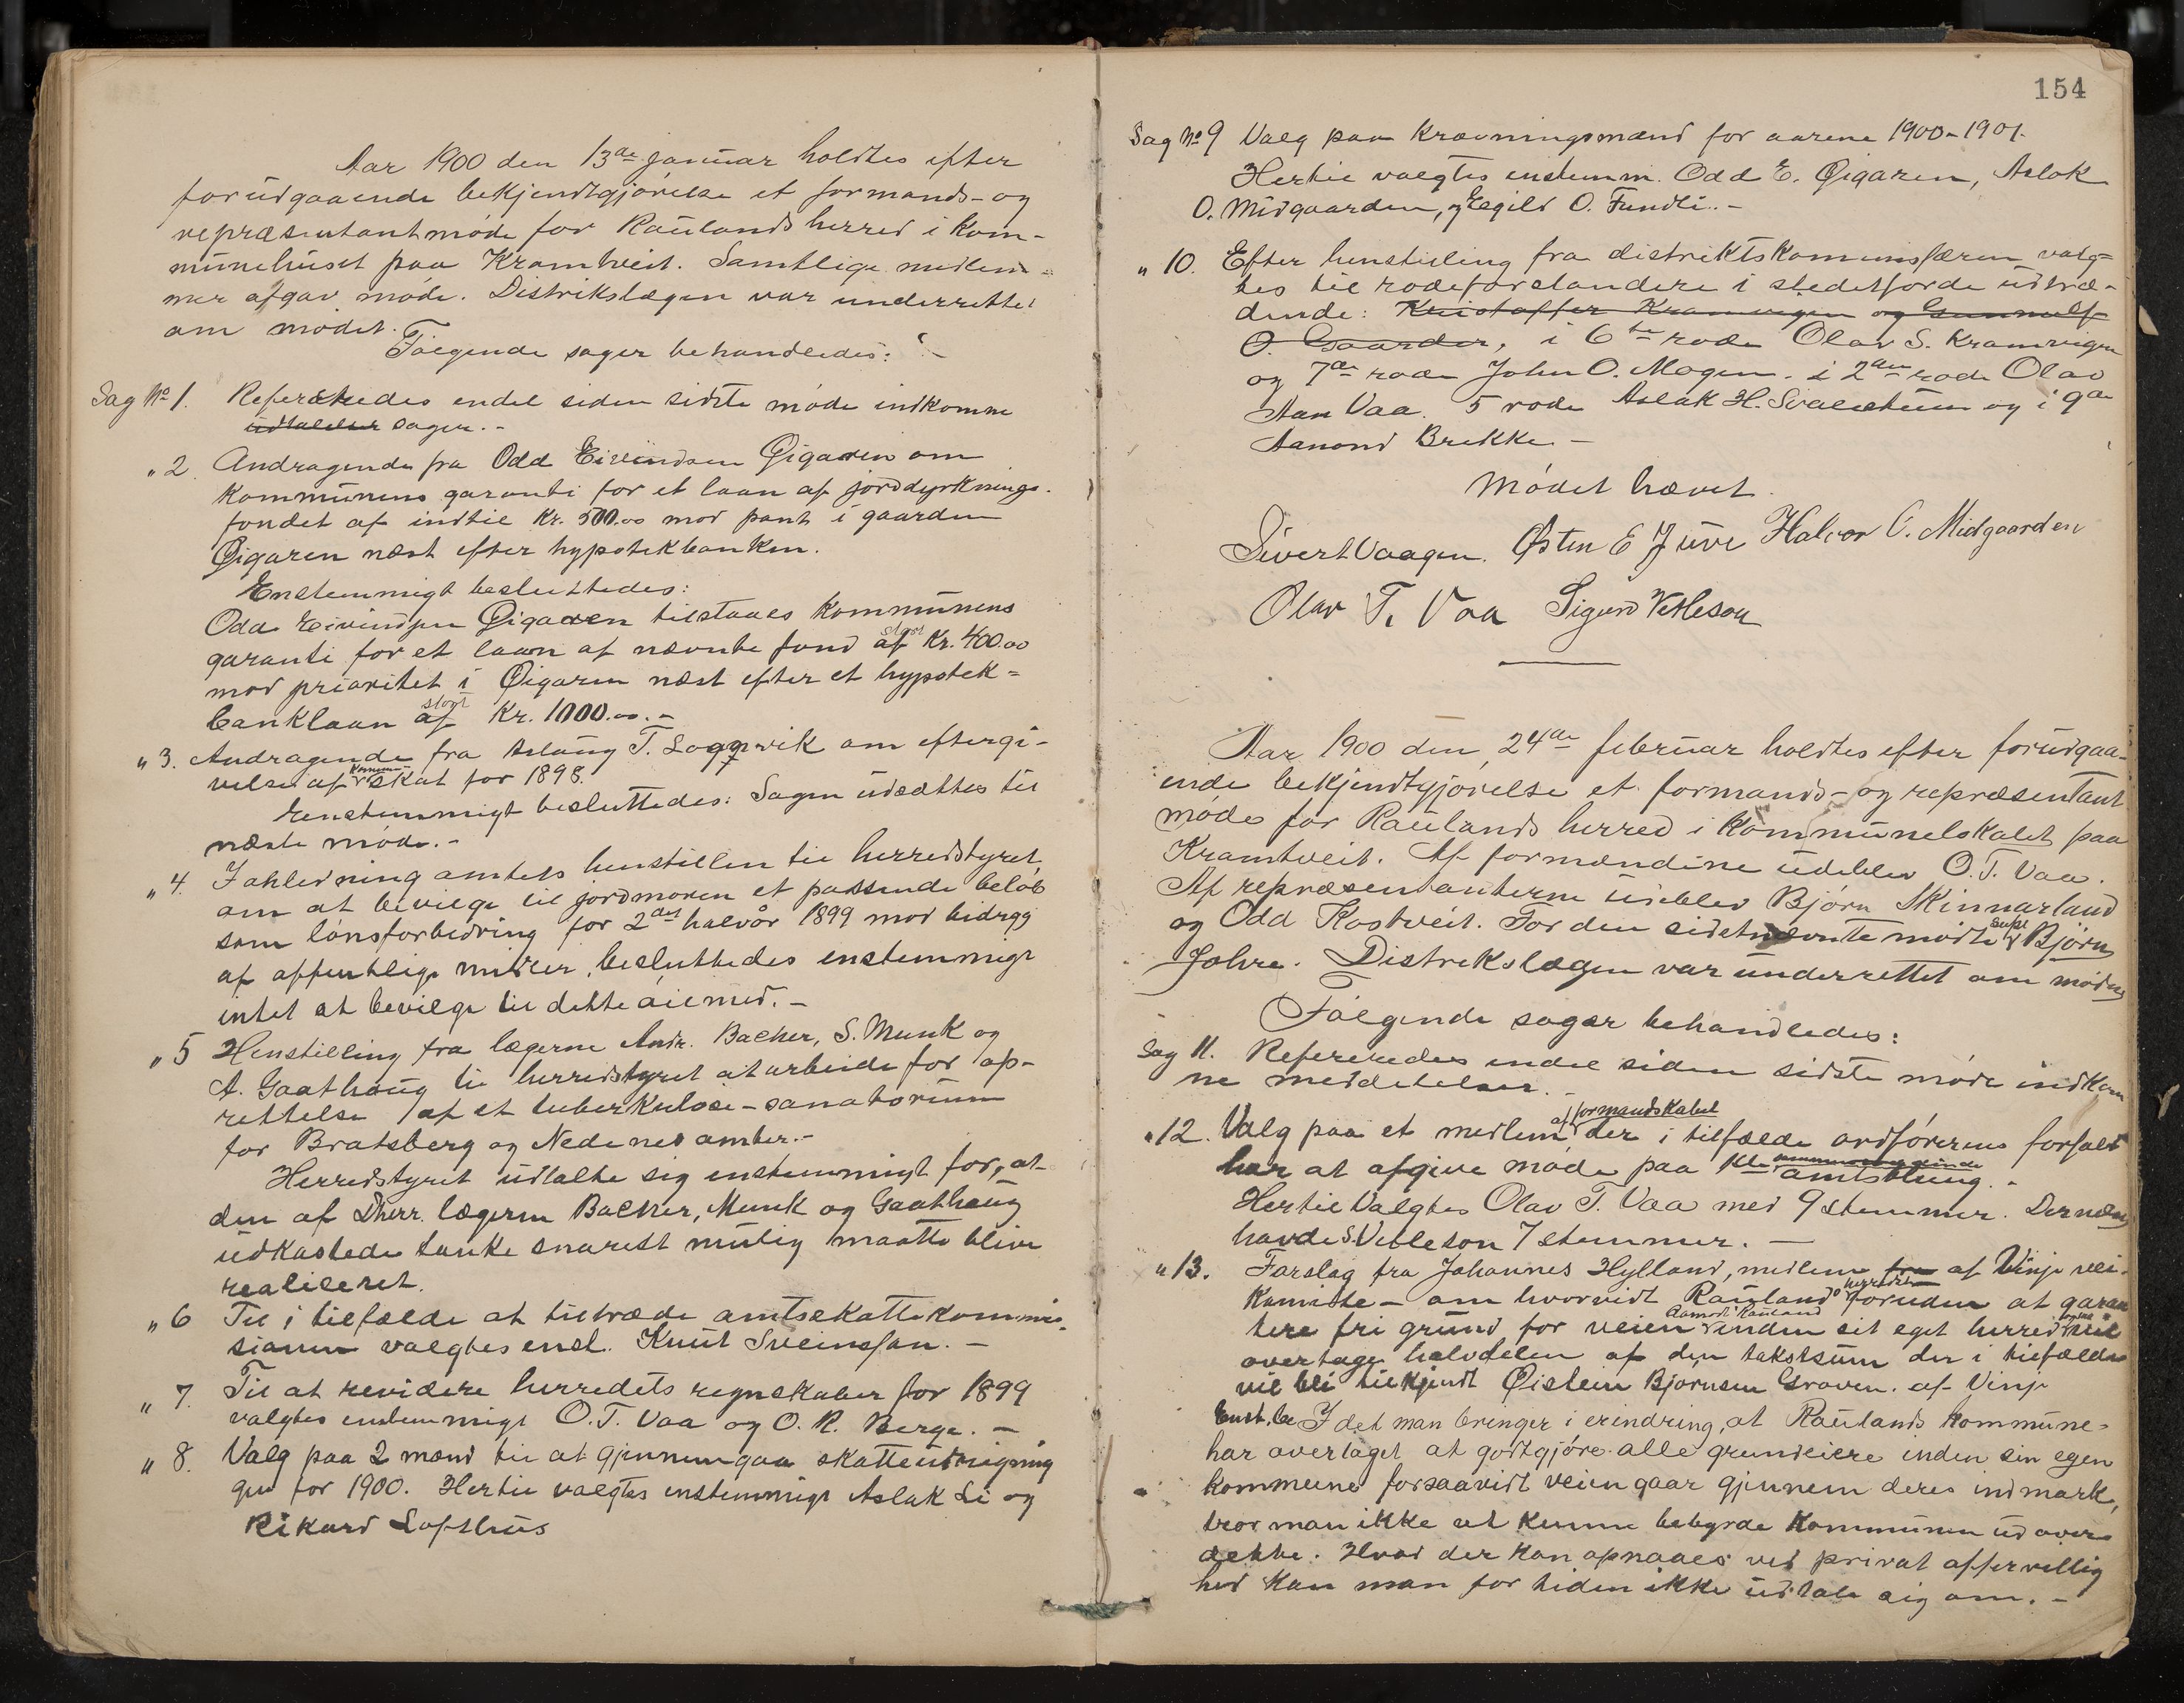 Aar 1900 den 13de januar holdtes efter
forudgaaende bekjendtgjørelse et formands- og
repræsentantmøde for Raulands herred i kom-
munehuset paa Kramtveit. Samtlige medlem-
mer afgav møde. Distrikslægen var underrettet
om mødet.
Følgende sager behandledes:
Sag No 1. Refereredes endel siden sidste møde indkomne
udtalelser sager. -
" 2. Andragende fra Odd Eivindsen Øigaren om
kommunens garanti for et laan af jorddyrknings-
fondet af indtil Kr. 500.00 mod pant i gaarden
Øigaren næst efter hypotekbanken.
Enstemmigt besluttedes:
Odd Eivindsen Øigaren tilstaaes kommunens
garanti for et laan af nævnte fond stort af Kr. 400.00
mod prioritet i Øigaren næst efter et hypotek-
banklaan stort af Kr. 1000.00. -
" 3. Andragende fra Aslaug T. Loggvik om eftergi-
velse af komm. skat for 1898.
Enstemmigt besluttedes: Sagen udsættes til
næste møde. -
" 4. I anledning amtets henstillen til herredstyret
om at bevilge til jordmoren et passende beløb
som lønsforbedring for 2det halvår 1899 mod bidrag
af offentlige midler, besluttedes enstemmigt
intet at bevilge til dette øiemed. -
" 5 Henstilling fra lægerne Andr. Backer, S. Munk og
A. Gaathaug til herredstyret at arbeide for op-
rettelse af et tuberkulose-sanatorium
for Bratsberg og Nedenes amter. -
Herredstyret udtalte sig enstemmigt for, at
den af Dherr. lægerne Backer, Munk og Gaathaug
udkastede tanke snarest mulig maatte blive
realiseret.
" 6 Til i tilfælde at tiltræde amtsskattekommis-
sionen valgtes enst. Knut Sveinsson. -
" 7. Til at revidere herredets regnskaber for 1899
valgtes enstemmigt O. T. Vaa og O. R. Berge. -
" 8. Valg paa 2 mænd til at gjennemgaa skatteutligning
gen for 1900. Hertil valgtes enstemmigt Aslak Li og
Rikard Lofthus
154
Sag No 9 Valg paa kravningsmænd for aarene 1900-1901.
Hertil valgtes enstemm. Odd E. Øigaren, Aslak
O. Midgaarden, og Egild O. Fundli. -
" 10. Efter henstilling fra distriktskommisæren valg-
tes til rodeforstandere i stedetfor de udtræ-
dende: Kristoffer Kramvigen og Gunnulf
O. Gaarder, i 6te rode Olav S. Kramvigen
og 7de rode John O. Mogen. i 2den rode Olav
Aan Vaa. 5 rode Aslak H. Svalestuen og i 9de
Aanond Brekke. -
Mødet hævet.
Sivert Vaagen. Østen E Juve Halvor O. Midgaarden
Olav T. Vaa Sigurd Vetleson
Aar 1900 den 24de februar holdtes efter forudgaa-
ende bekjendtgjørelse et formands- og repræsentant
møde for Raulands herred i kommunelokalet paa
Kramtveit. Af formændene udeblev O. T. Vaa.
Af repræsentanterne udeblev Bjørn Skinnarland
og Odd Kostveit. For den sidstnævnte mødte supl. Bjørn
Johre. Distrikslægen var underrettet om mødet
Følgende sager behandledes:
Sag 11. Refereredes endel siden sidste møde indkom
ne meddelelser. -
" 12. Valg paa et medlem af formandskabet der i tilfælde ordførerens forfald
har at afgive møde paa amtsthing. -
Hertil valgtes Olav T. Vaa med 9 stemmer. Dernæst
havde S. Vetleson 7 stemmer. -
" 13. Forslag fra Johannes Hylland, medlem fra af Vinje vei-
komite - om hvorvidt Rauland herred foruden at garan
tere fri grund for veien Aamot Rauland inden sit eget herred vil
overtage halvdelen af den takstsum der i tilfælde
vil bli tilkjendt Øistein Bjørnsen Groven. af Vinje
Enst. be. I det man bringer i erindring, at Raulands kommune-
har overtaget at godtgjøre alle grundeiere inden sin egen
kommune forsaavidt veien gaar gjennem deres indmark,
tror man ikke at kunne bebyrde kommunen ud over
dette. Hvad der kan opnaaes ved privat offervillig
hed kan man for tiden ikke udtale sig om. -